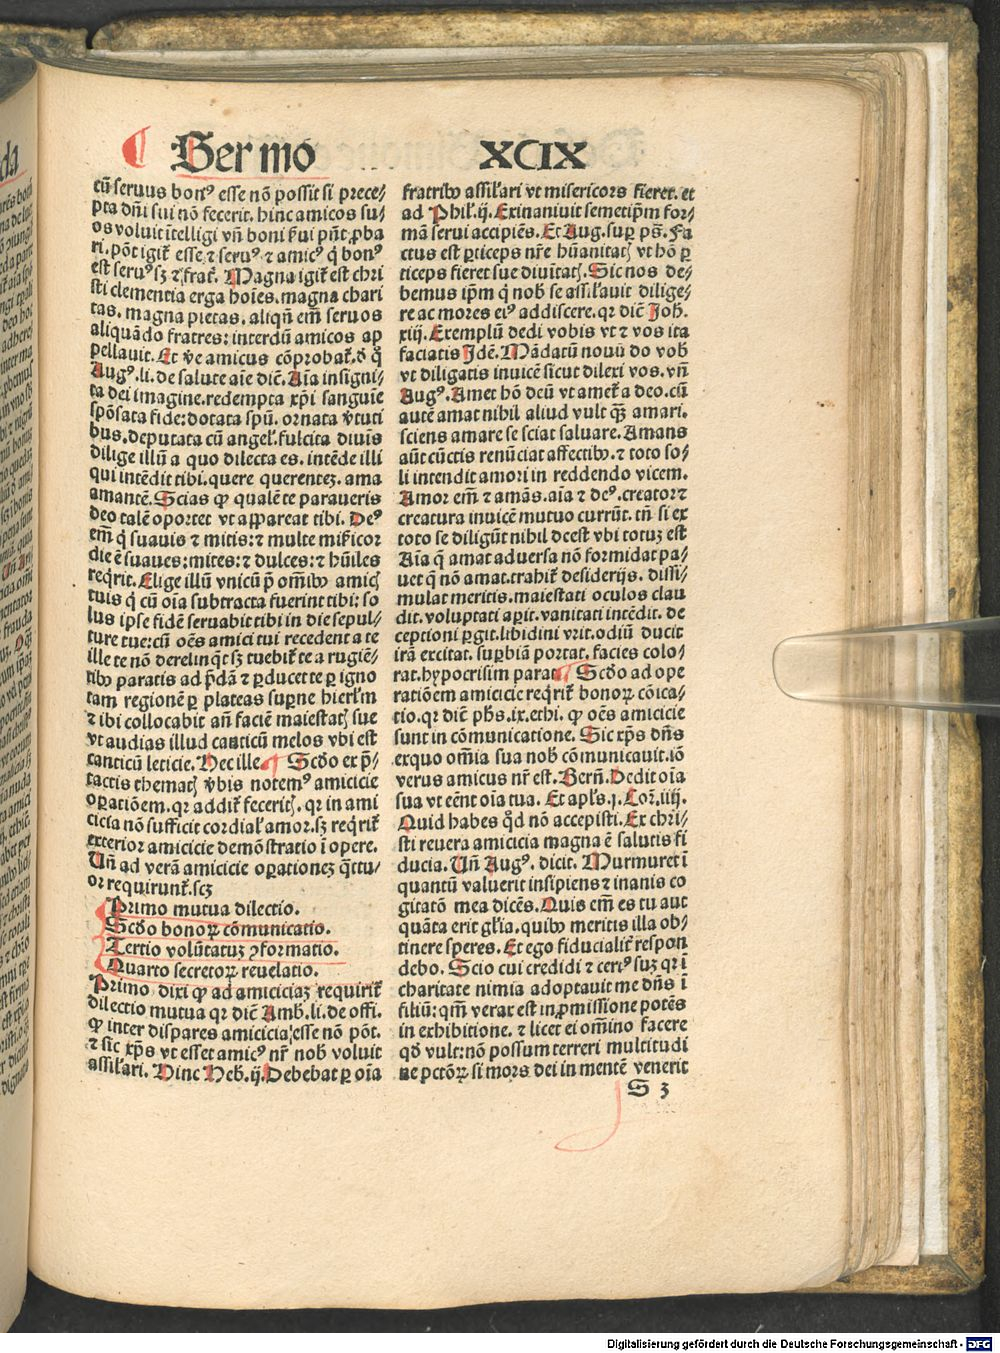 Sermo XCIX
cū seruus bonꝰ esse nō possit si prece⸗
pta dn̄i sui nō fecerit. hinc amicos su⸗
os voluit ītelligi vn̄ boni ẜui pn̄t ꝓba
ri. pōt igiť esse ⁊ seruꝰ ⁊ amicꝰ q̇ bonꝰ
est seruꝰ sꝫ ⁊ frať. Magna igiť est chri
sti clementia erga hoīes. magna chari
tas. magna pietas. aliqn̄ em̄ seruos
aliquādo fratres: interdū amicos ap
pellauit. Et ṽe amicus cōprobať. d̓ q̊
Augꝰ. li. de salute aīe dic̄. Aīa insigni⸗
ta dei imagine. redempta xp̄i sanguīe
spōsata fide: dotata spū. ornata ṽtuti
bus. deputata cū angeł. fulcita diuīs
dilige illū a quo dilecta es. intēde illi
qui intēdit tibi. quere querenteꝫ. ama
amantē. Scias ꝙ qualē te paraueris
deo talē oportet vt appareat tibi. Deꝰ
em̄ q̇ suauis ⁊ mitis: ⁊ multe mīẜicor
die ē suaues: mites: ⁊ dulces: ⁊ hūiles
reqͥrit. Elige illū vnicū p̄ om̄ibꝰ amicꝭ
tuis q̇ cū oīa subtracta fuerint tibi: so
lus ipse fidē seruabit tibi in die sepul⸗
ture tue: cū oēs amici tui recedent a te
ille te nō derelinq̄t sꝫ tuebiť te a rugiē⸗
tibꝰ paratis ad p̄dā ⁊ ꝑducet te ꝑ igno
tam regionē ꝑ plateas suꝑne hierłm
⁊ ibi collocabit an̄ faciē maiestatꝭ sue
vt audias illud canticū melos vbi est
canticū leticie. Hec ille. Scd̓o ex p̄⸗
tactis themaꝭ ṽbis notemꝰ amicicie
oꝑatiōem. qꝛ addiť fecerīꝭ. qꝛ in ami
cicia nō sufficit cordiał amor. sꝫ reqͥriť
exterior amicicie demōstratio ī opere.
Vn̄ ad verā amicicie oꝑationeꝫ q̈ttu⸗
or requirunť. scꝫ
Primo mutua dilectio.
Scd̓o bonoꝝ cōmunicatio.
Tertio volūtatuꝫ ꝯformatio.
Quarto secretoꝝ reuelatio.
Primo dixi ꝙ ad amiciciaꝫ requiriť
dilectio mutua qꝛ dic̄ Amb. li. de offi.
ꝙ inter dispares amicicia esse nō pōt.
⁊ sic xp̄s vt esset amicꝰ nr̄ nob̓ voluit
assiłari. Hinc Heb. ij. Debebat ꝑ oīa
fratribꝰ assiłari vt misericors fieret. et
ad Phil'. ij. Exinaniuit semetip̄m for⸗
mā serui accipiēs. Et Aug. suꝑ ps̄. Fa
ctus est ꝑticeps nr̄e hūanitatꝭ vt hō ꝑ
ticeps fieret sue diuītatꝭ. Sic nos de⸗
bemus ip̄m q̇ nob̓ se assiłauit dilige⸗
re ac mores eiꝰ addiscere. qꝛ dic̄ Joh̄.
xiij. Exemplū dedi vobis vt ⁊ vos ita
faciatis Jdē. Mādatū nouū do vob̓
vt diligatis inuicē sicut dilexi vos. vn̄
Augꝰ. Amet hō deū vt ameť a deo. cū
autē amat nihil aliud vult q̄ꝫ amari.
sciens amare se sciat saluare. Amans
aūt cūctis renūciat affectibꝰ. ⁊ toto so⸗
li intendit amori in reddendo vicem.
Amor em̄ ⁊ amās. aīa ⁊ deꝰ. creator ⁊
creatura inuicē mutuo currūt. tn̄ si ex
toto se diligūt nihil deest vbi totuꝫ est
Aīa q̄ amat aduersa nō formidat pa⸗
uet q̄ nō amat. trahiť desiderijs. dissi⸗
mulat meritis. maiestati oculos clau
dit. voluptati aꝑit. vanitati intēdit. de
ceptioni ꝑgit. libidini vrit. odiū ducit
irā excitat. suꝑbiā portat. facies colo⸗
rat. hypocrisim parat. Scd̓o ad ope
ratiōem amicicie reqͥriť bonoꝝ cōica⸗
tio. qꝛ dic̄ ph̄s. ix. ethi. ꝙ oēs amicicie
sunt in cōmunicatione. Sic xp̄s dn̄s
exquo om̄ia sua nob̓ cōmunicauit. iō
verus amicus nr̄ est. Bern̄. Dedit oīa
sua vt eēnt oīa tua. Et apłs. j. Coꝝ. iiij.
Quid habes q̇d nō accepisti. Ex chri⸗
sti reuera amicicia magna ē salutis fi
ducia. Vn̄ Augꝰ. dicit. Murmuret ī
quantū valuerit insipiens ⁊ inanis co
gitatō mea dicēs. Quis em̄ es tu aut
quāta erit gł̄ia. quibꝰ meritis illa ob⸗
tinere speres. Et ego fiducialiť respon
debo. Scio cui credidi ⁊ cerꝰ suꝫ qꝛ ī
charitate nimia adoptauit me dn̄s ī
filiū: qm̄ verax est in ꝓmissione potēs
in exhibitione. ⁊ licet ei om̄ino facere
qd̓ vult: nō possum terreri multitudi
ne pctōꝝ si mors dei in mentē venerit
S 3
Digitalisierung gefördert durch die Deutsche Forschungsgemeinschaft - DFG